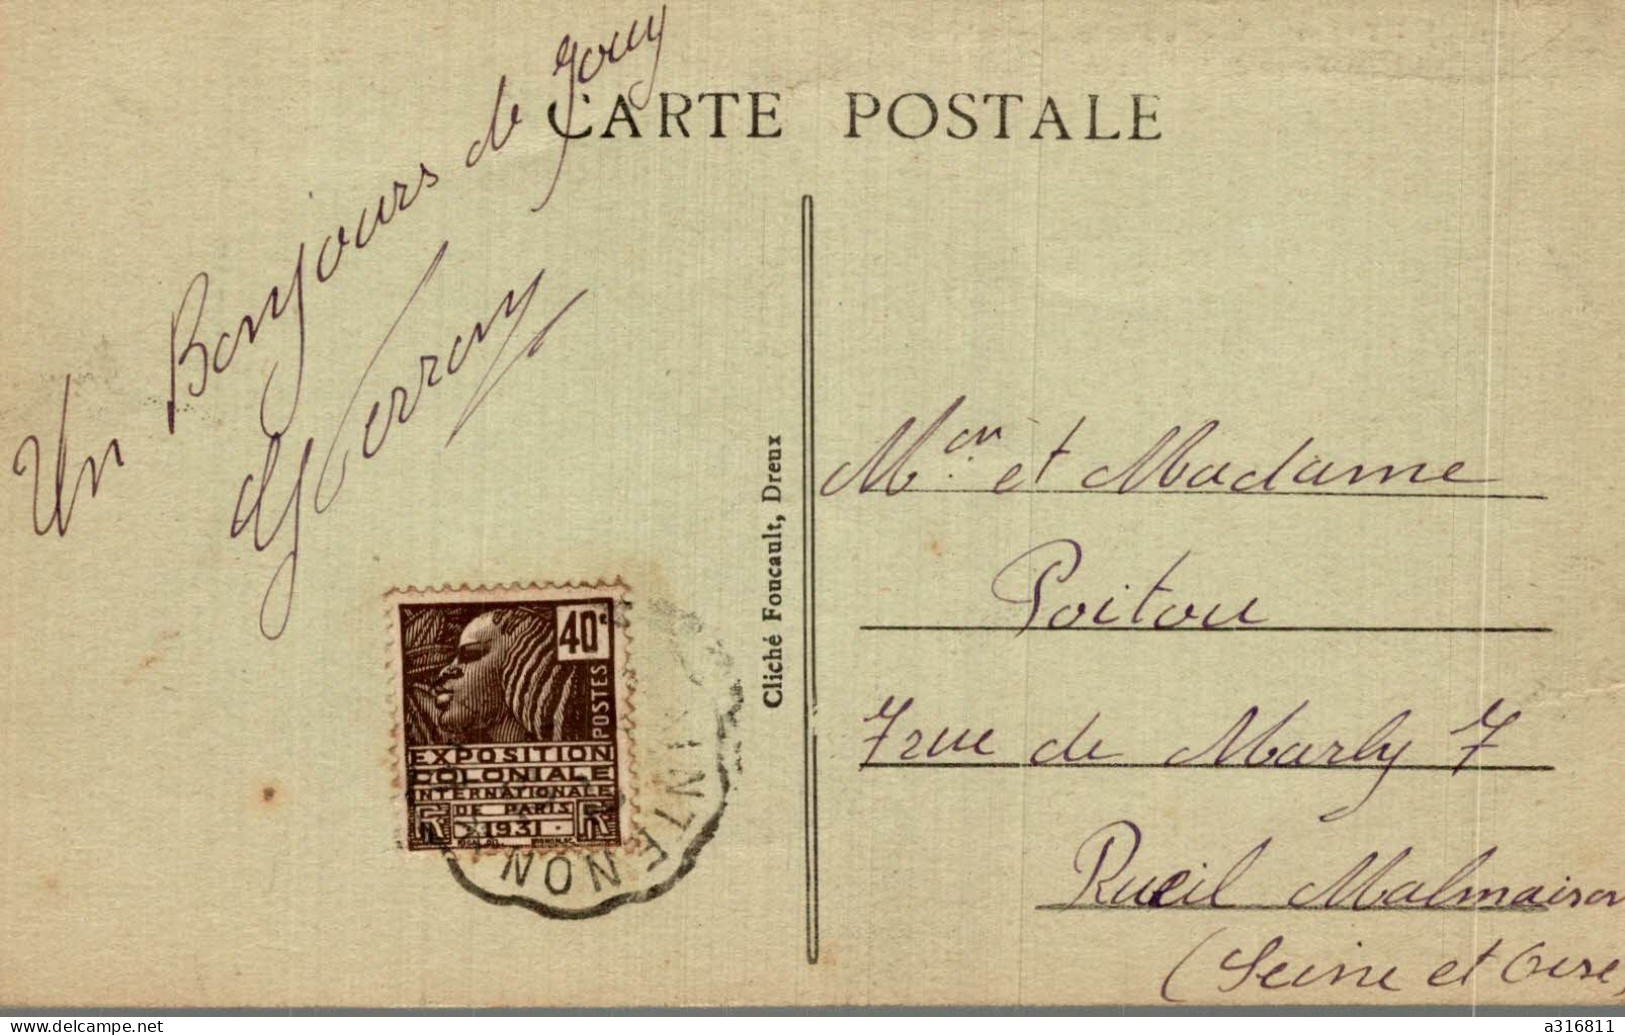 CARTE POSTALE
Un Bonjours de Jouy
Cliché Foucault, Dreux
Mon. et Madame
Poitou
7 rue de Marly 7
Rueil Malmaison
(Seine et Oise
40c
POSTES
EXPOSITION
COLONIALE
INTERNATIONALE
DE PARIS
1931
INTENON
www.delcampe.net
a316811